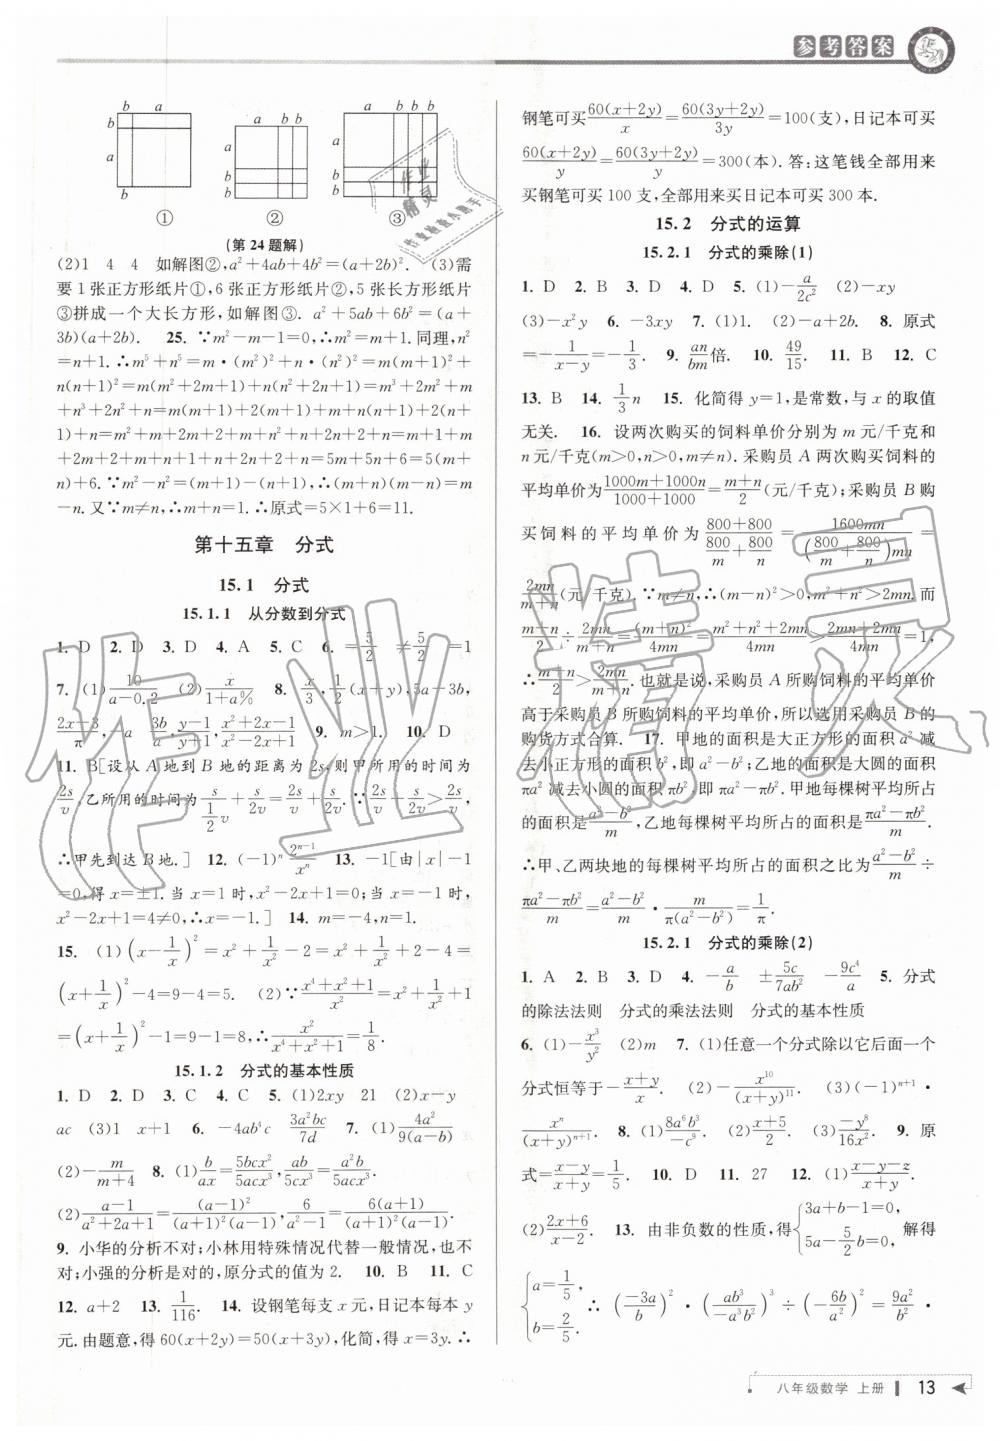 参考答案
b a
b
a
①
a b b
a
b
b
②
a b b b
a
b
b
③
(第 24 题解)
(2)1 4 4 如解图②,a²+4ab+4b²=(a+2b)². (3)需
要 1 张正方形纸片①,6 张正方形纸片②,5 张长方形纸片
③拼成一个大长方形,如解图③. a²+5ab+6b²=(a+
3b)(a+2b). 25. ∵m²-m-1=0,∴m²=m+1. 同理,n²
=n+1. ∴m⁵+n⁵=m·(m²)²+n·(n²)²=m(m+1)²+
n(n+1)²=m(m²+2m+1)+n(n²+2n+1)=m³+2m²+m
+n³+2n²+n=m(m+1)+2(m+1)+m+n(n+1)+2(n+
1)+n=m²+m+2m+2+m+n²+n+2n+2+n=m+1+m
+2m+2+m+n+1+n+2n+2+n=5m+5n+6=5(m+
n)+6. ∵m²-n²=(m+1)-(n+1),∴(m+n)(m-n)=m
-n. 又∵m≠n,∴m+n=1. ∴原式=5×1+6=11.
第十五章 分式
15.1 分式
15.1.1 从分数到分式
1. D 2. D 3. D 4. A 5. C 6. =5/2 ≠5/2 =1
7. (1)10/(a-0.2) (2)x/(1+a%) 8. x/3,1/2(x+y),5a-3b,
(2x-3)/π,-a 3b/a,(y-1)/(y+1),(x²+2x-1)/(x²-2x+1) 9. m>1. 10. D
11. B[设从 A 地到 B 地的距离为 2s,则甲所用的时间为
2s/v,乙所用的时间为 s/(1/2 v)+s/2v=2s/v+s/2v. ∵2s/v<2s/v+s/2v,
∴甲先到达 B 地.] 12. (-1)ⁿ 2ⁿ⁻¹/xⁿ 13. -1[由|x|-1
=0,得 x=±1. 当 x=1 时,x²-2x+1=0;当 x=-1 时,
x²-2x+1=4≠0,∴x=-1.] 14. m=-4,n=1.
15. (1)(x-1/x)²=x²+1/x²-2=x²+1/x²+2-4=
(x+1/x)²-4=9-4=5. (2)∵(x⁴+x²+1)/x²=x²+1/x²+1
=(x+1/x)²-1=9-1=8,∴x²/(x⁴+x²+1)=1/8.
15.1.2 分式的基本性质
1. D 2. D 3. C 4. C 5. (1)2xy 21 (2)x-y
ac (3)1 x+1 6. -4ab⁴c 3a²bc/7d 7. (1)4a²/9(a-b)
(2)-m/(m+4) 8. (1)b/ax=5bcx²/5acx³,ab/5cx³=a²b/5acx³.
(2)(a-1)/(a²+2a+1)=(a-1)²/(a+1)²(a-1),6/(a²-1)=6(a+1)/(a+1)²(a-1).
9. 小华的分析不对;小林用特殊情况代替一般情况,也不
对;小强的分析是对的,原分式的值为 2. 10. B 11. C
12. a+2 13. 1/116. 14. 设钢笔每支 x 元,日记本每本 y
元. 由题意,得 60(x+2y)=50(x+3y),化简,得 x=3y. ∴
钢笔可买60(x+2y)/x=60(3y+2y)/3y=100(支),日记本可买
60(x+2y)/y=60(3y+2y)/y=300(本). 答:这笔钱全部用来
买钢笔可买 100 支,全部用来买日记本可买 300 本.
15.2 分式的运算
15.2.1 分式的乘除(1)
1. D 2. B 3. D 4. D 5. (1)-a/2c² (2)-xy
(3)-x²y 6. -3xy 7. (1)1. (2)-a+2b. 8. 原式
=-1/(x-y)=-1/3. 9. an/bm倍. 10. 49/15. 11. B 12. C
13. B 14. 1/3 n 15. 化简得 y=1,是常数,与 x 的取值
无关. 16. 设两次购买的饲料单价分别为 m 元/千克和
n 元/千克(m>0,n>0,m≠n). 采购员 A 两次购买饲料的
平均单价为(1000m+1000n)/(1000+1000)=(m+n)/2(元/千克);采购员 B 购
买饲料的平均单价为(800+800)/(800/m+800/n)=1600mn/(800/m+800/n)mn=
2mn/(m+n)(元/千克). ∵m≠n,∴(m-n)²>0,m²+n²>2mn. 而
(m+n)/2÷2mn/(m+n)=(m+n)²/4mn=(m²+n²+2mn)/4mn>(2mn+2mn)/4mn=1,
∴(m+n)/2>2mn/(m+n). 也就是说,采购员 A 所购饲料的平均单价
高于采购员 B 所购饲料的平均单价,所以选用采购员 B 的
购货方式合算. 17. 甲地的面积是大正方形的面积 a² 减
去小正方形的面积 b²,即 a²-b²;乙地的面积是大圆的面积
πa² 减去小圆的面积 πb²,即 πa²-πb². 甲地每棵树平均所占
的面积是(a²-b²)/m,乙地每棵树平均所占的面积是(πa²-πb²)/m.
∴甲、乙两块地的每棵树平均所占的面积之比为(a²-b²)/m÷
(πa²-πb²)/m=(a²-b²)/m·m/π(a²-b²)=1/π.
15.2.1 分式的乘除(2)
1. A 2. B 3. D 4. -a/b ±5c/7ab² -9c⁴/a 5. 分式
的除法法则 分式的乘法法则 分式的基本性质
6. (1)-x³/y² (2)m 7. (1)任意一个分式除以它后面一个
分式恒等于-(x+y)/x. (2)-x¹⁰/(x+y)¹¹. (3)(-1)ⁿ⁺¹·
xⁿ/(x+y)ⁿ⁺¹. 8. (1)8a⁶b³/-c⁹ (2)(x+5)/2. (3)-y⁸/16x². 9. 原
式=(x-y)/(x+y)=1/5. 10. D 11. 27 12. (1)(x-y-z)/(x+y).
(2)(2x+6)/(x-2). 13. 由非负数的性质,得{3a+b-1=0, 5a-5/2 b=0, 解得
{a=1/5, b=2/5. ∴(-3a/b)²·(ab³/-a³b²)³÷(-6b/a²)²=9a²/b²·
八年级数学 上册 13
作业精灵